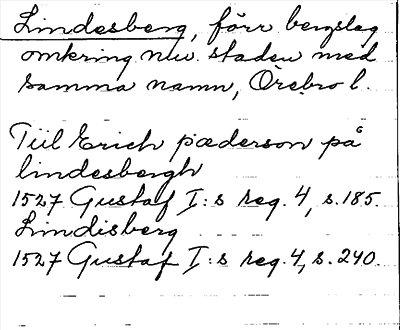 Lindesberg, förr bergslag
omkring nuv. staden med
samma namn, Örebro l.
Till Erich pæderson på
lindesbergh
1527 Gustaf I:s reg. 4, s. 185.
Lindisberg
1527 Gustaf I:s reg. 4, s. 240.